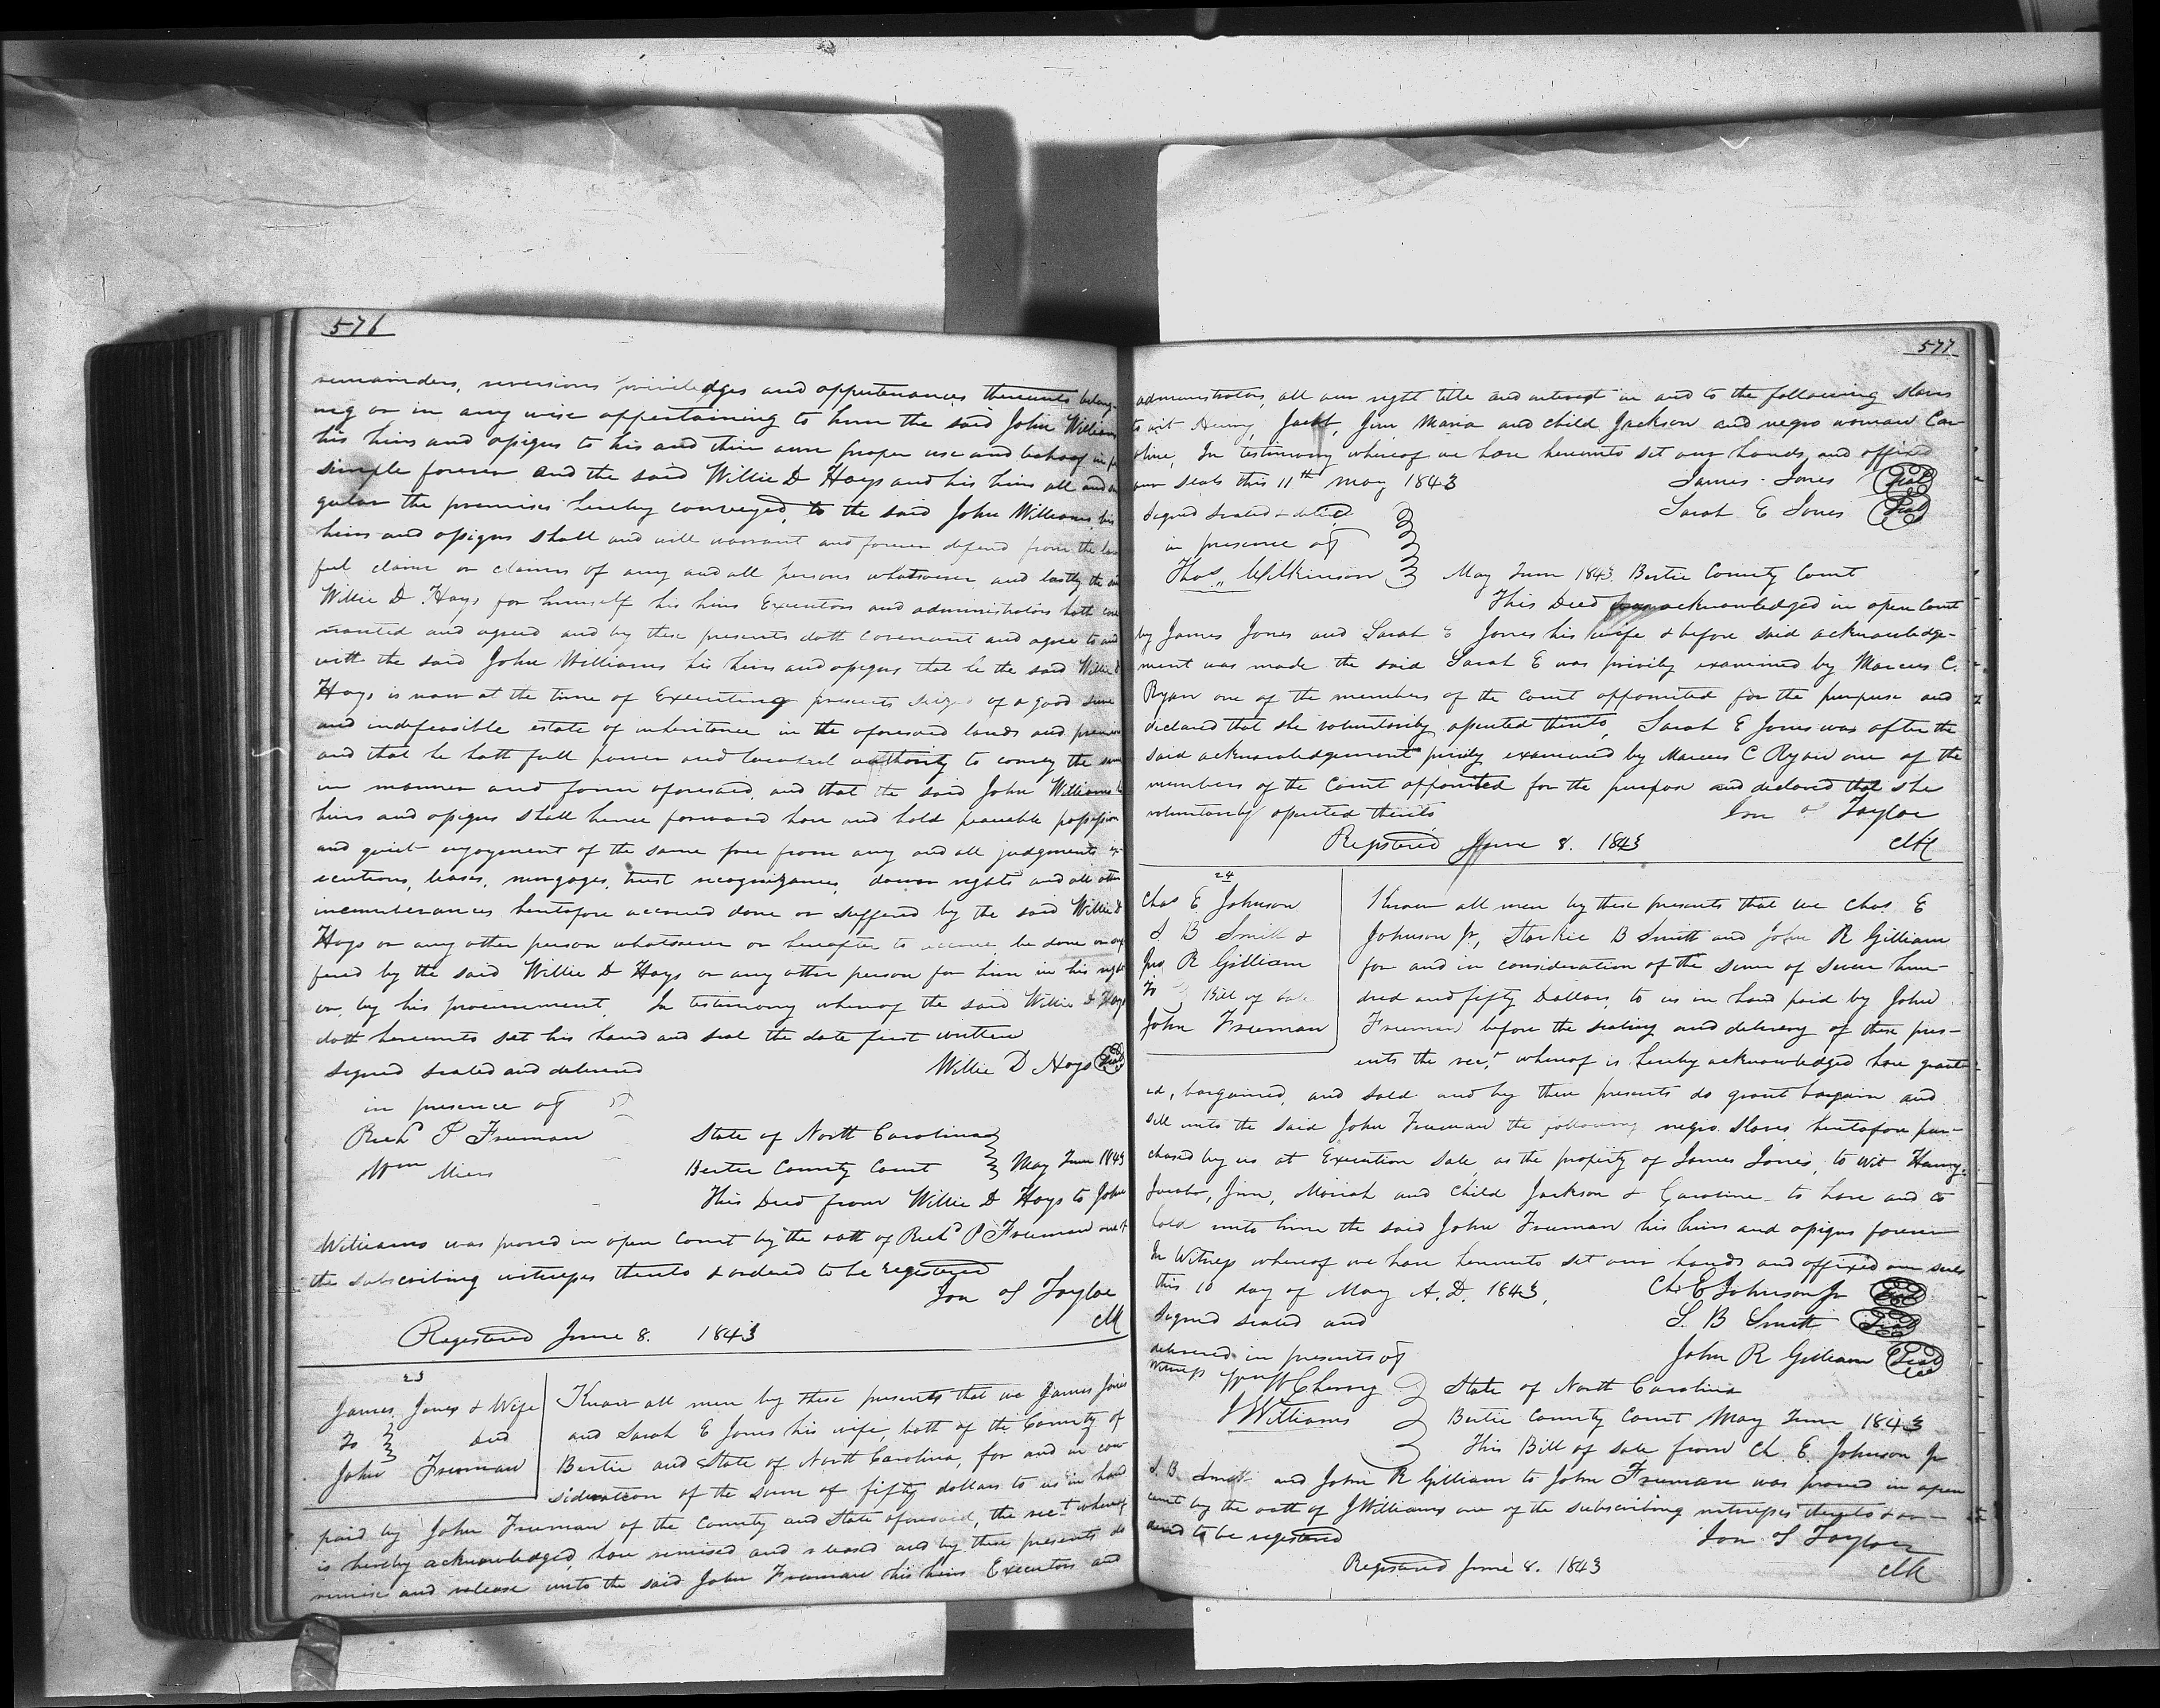 576
remainders, reversions priviledges and appurtenances thereunto belong-
ing or in any wise appertaining to him the said John Williams
his heirs and assigns to his and their own proper use and behoof in fee
simple forever and the said Willie D Hays and his heirs all and sin
gular the premises hereby conveyed, to the said John Williams his
heirs and assigns shall and will warrant and forever defend from the law
ful claim or claims of any and all persons whatsoever and lastly the said
Willie D. Hays for himself his heirs Executors and administrators hath cove
nanted and agreed and by these presents doth covenant and agree to and
with the said John Williams his heirs and assigns that he the said Willie D
Hays is now at the time of Executing presents seized of a good sure
and indefeasible estate of inheritance in the aforesaid lands and premises
and that he hath full power and lawful authority to convey the same
in manner and form aforesaid, and that the said John Williams his
heirs and assigns shall hence forward have and hold peaceable possession
and quiet enjoyment of the same free from any and all judgments ex-
ecutions, leases, mortgages, trust recognizances, dower rights and all other
incumberances heretofore accrued done or suffered by the said Willie D
Hays or any other person whatsoever or hereafter to accrue be done or suf
fered by the said Willie D Hays or any other person for him in his right
or by his procurement. In testimony whereof the said Willie D Hays
doth hereunto set his hand and seal the date first written
Signed sealed and delivered Willie D Hays Seal
in presence of
Richd P Freeman State of North Carolina
Wm Miers Bertie County Court May Term 1843
This Deed from Willie D Hays to John
Williams was proved in open Court by the oath of Richd P Freeman one of
the subscribing witnesses thereto & ordered to be registered
Jon S Tayloe
Clk
Registered June 8. 1843
23
James Jones & Wife
To Deed
John Freeman
Know all men by these presents that we James Jones
and Sarah E Jones his wife, both of the County of
Bertie and State of North Carolina, for and in con
sideration of the sum of fifty dollars to us in hand
paid by John Freeman of the County and State aforesaid, the rect whereof
is hereby acknowledged, have remised and released and by these presents do
remise and release unto the said John Freeman his heirs Executors and
577
administrators, all our right title and interest in and to the following slaves
to wit Henry, Jacob, Jim, Maria and child Jackson and negro woman Car
oline, In testimony whereof we have hereunto set our hands, and affixed
our seals this 11th May 1843 James Jones Seal
Signed sealed & delivd Sarah E Jones Seal
in presence of
Thos Wilkinson May Term 1843. Bertie County Court
This Deed was acknowledged in open Court
by James Jones and Sarah E Jones his wife & before said acknowledge-
ment was made the said Sarah E was privily examined by Marcus C.
Ryan one of the members of the Court appointed for the purpose and
declared that she voluntarily assented thereto, Sarah E Jones was after the
said acknowledgement privily examined by Marcus C Ryan one of the
members of the Court appointed for the purpose and declared that she
voluntarily assented thereto Jon S Tayloe
Registered June 8. 1843 Clk
24
Chas E. Johnson
S. B Smith &
Jno R Gilliam
To Bill of Sale
John Freeman
Know all men by these presents that we Chas. E
Johnson Jr, Starkie B Smith and John R Gilliam
for and in consideration of the sum of seven hun-
dred and fifty Dollars, to us in hand paid by John
Freeman before the sealing and delivery of these pres-
ents the rect whereof is hereby acknowledged have grant-
ed, bargained, and sold and by these presents do grant bargain and
sell unto the said John Freeman the following negro slaves heretofore pur-
chased by us at Execution Sale as the property of James Jones, to wit Henry,
Jacob, Jim, Moriah and Child Jackson & Caroline to have and to
hold unto him the said John Freeman his heirs and assigns forever
In Witness whereof we have hereunto set our hands and affixed our seals
this 10 day of May A.D. 1843, Ch E Johnson Jr Seal
Signed sealed and S. B Smith Seal
delivered in presents of John R Gilliam Seal
Witness Wm W Cherry State of North Carolina
J Williams Bertie County Court May Term 1843
This Bill of sale from Ch. E. Johnson Jr
S. B. Smith and John R Gilliam to John Freeman was proved in open
court by the oath of J Williams one of the subscribing witnesses thereto & or-
dered to be registered Jon. S Tayloe
Registered June 8. 1843 Clk